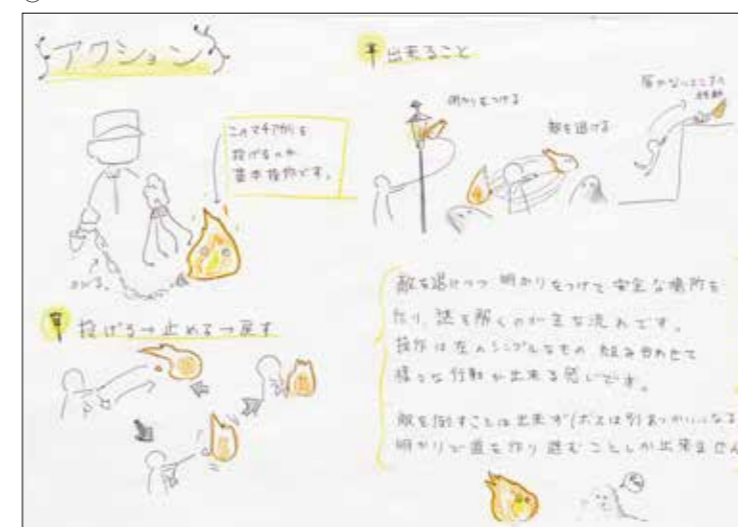 アクション
このマチアカリを
投げるのが
基本操作です。
投げる→止める→戻す
出来ること
明かりをつける
敵を退ける
届かないところへ
移動
敵を退けつつ 明かりをつけて 安全な場所を
作り、謎を解くのが主な流れです。
操作は左のシンプルなもの 組み合わせて
様々な行動が出来る感じです。
敵を倒すことは出来ず(ボスは別あつかいになる
明かりで道を作り 進むことしか出来ません